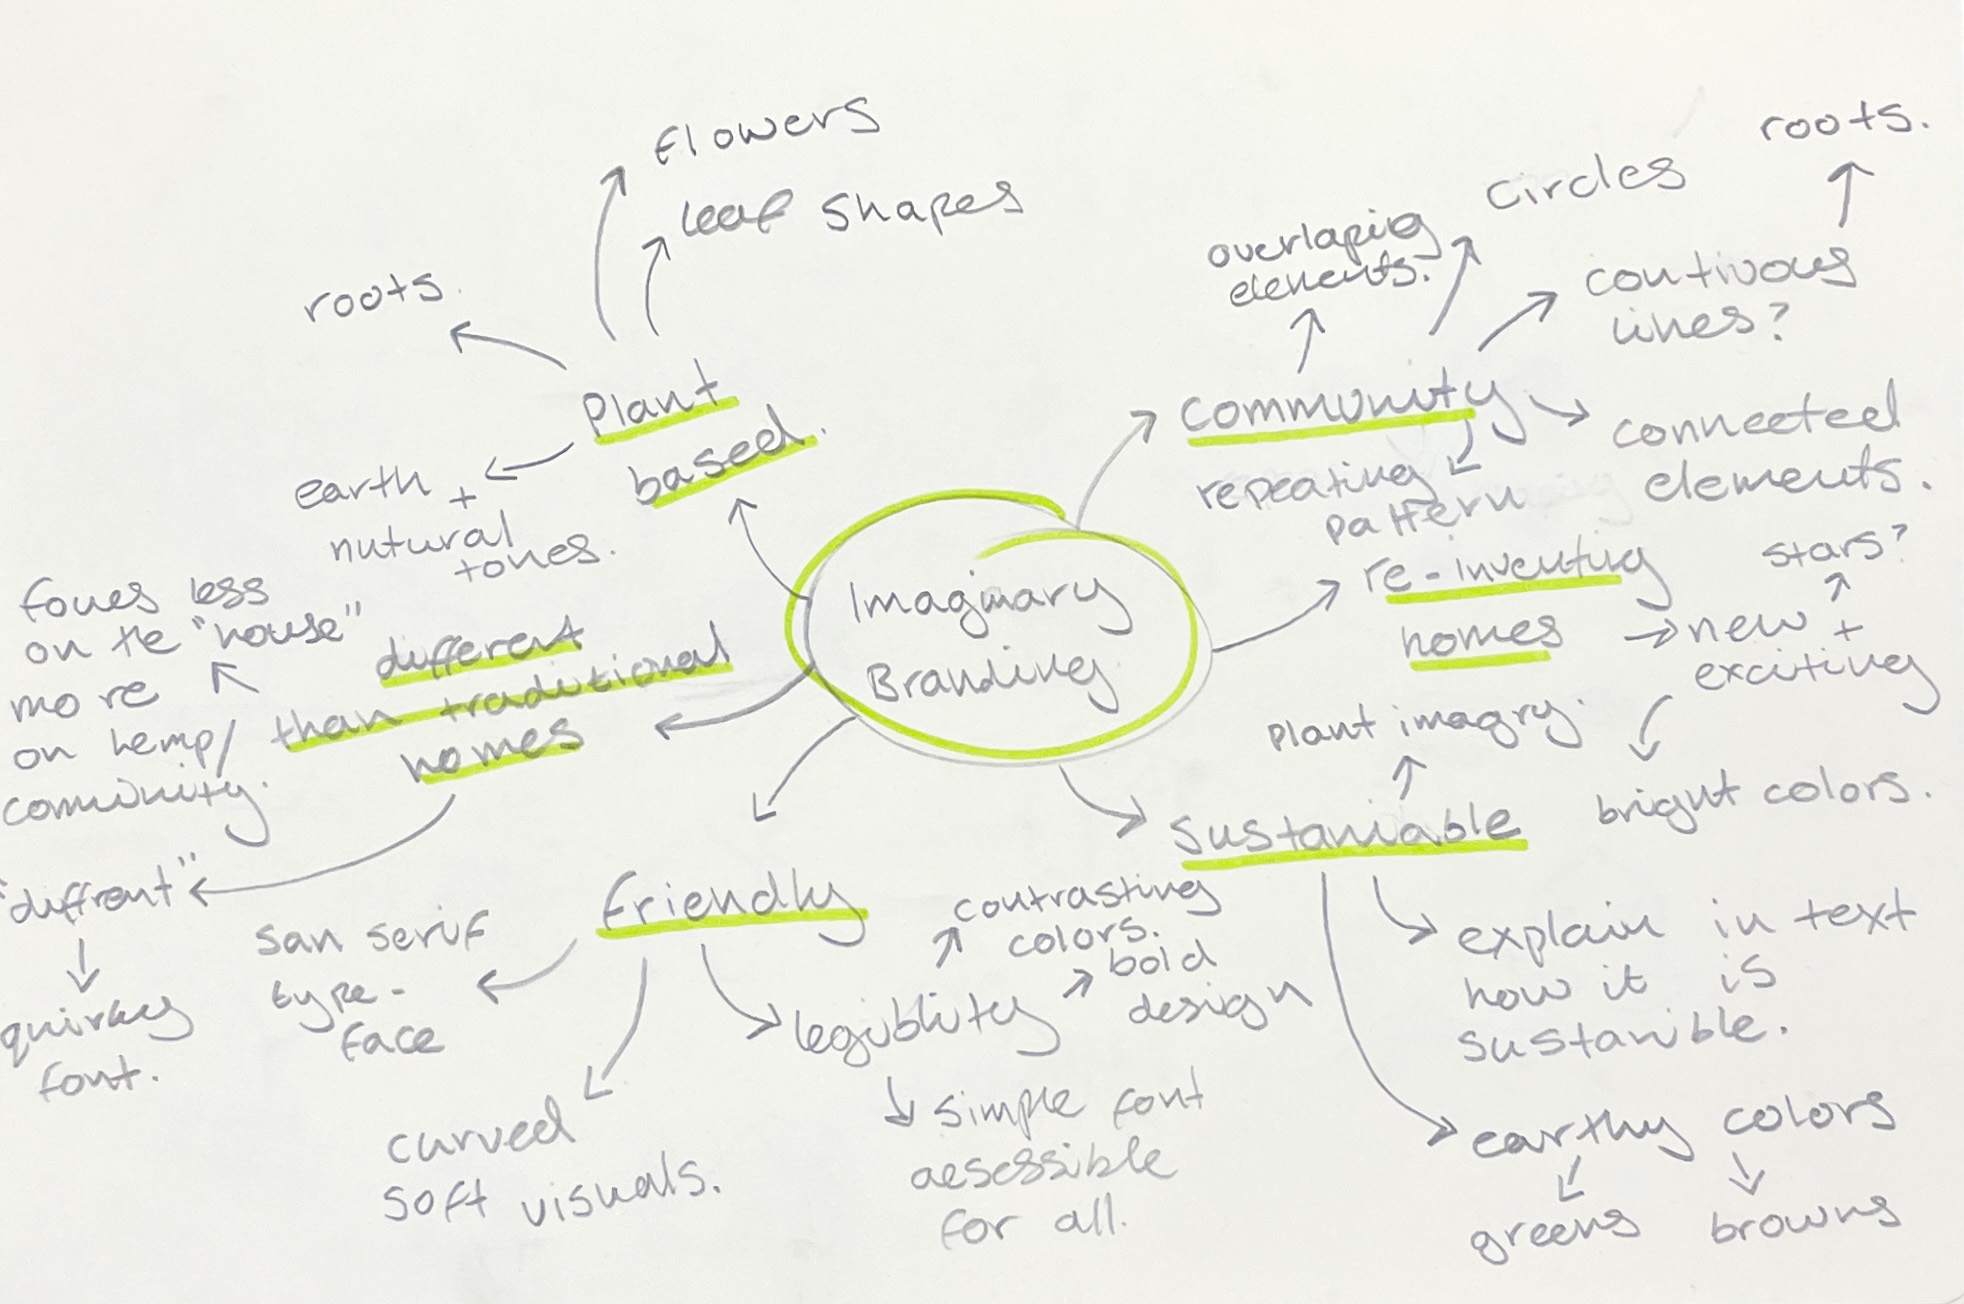 Imaginary
Branding.
Plant
based.
Flowers
leaf shapes
roots.
earth +
nutural
tones.
Community
overlapig
elements.
Circles
contivous
lines?
roots.
connected
elements.
repeating
pattern
re-inventing
homes
new +
exciting
stars?
bright colors.
Sustaniable
Plant imagry.
explain in text
how it is
sustanible.
earthy colors
greens
browns
friendly
contrasting
colors.
bold
design
legiblity
simple font
aesessible
for all.
curved
soft visuals.
san serif
type-
face
different
than traditional
homes
foues less
on the "house"
more
on hemp/
community.
"diffrent"
quirkey
font.